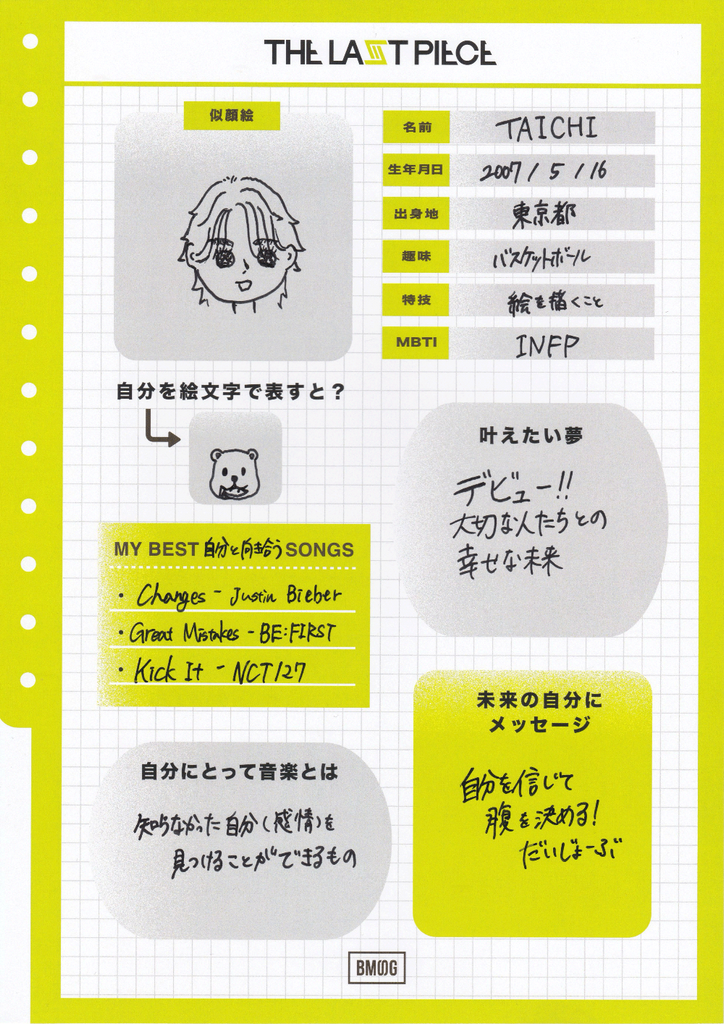 THE LAST PIECE
似顔絵
名前 TAICHI
生年月日 2007 / 5 / 16
出身地 東京都
趣味 バスケットボール
特技 絵を描くこと
MBTI INFP
自分を絵文字で表すと？
叶えたい夢
デビュー!!
大切な人たちとの
幸せな未来
MY BEST 自分と向き合う SONGS
・Changes - Justin Bieber
・Great Mistakes - BE:FIRST
・Kick It - NCT127
未来の自分に
メッセージ
自分を信じて
腹を決める!
だいじょーぶ
自分にとって音楽とは
知らなかった自分(感情)を
見つけることができるもの
BMSG